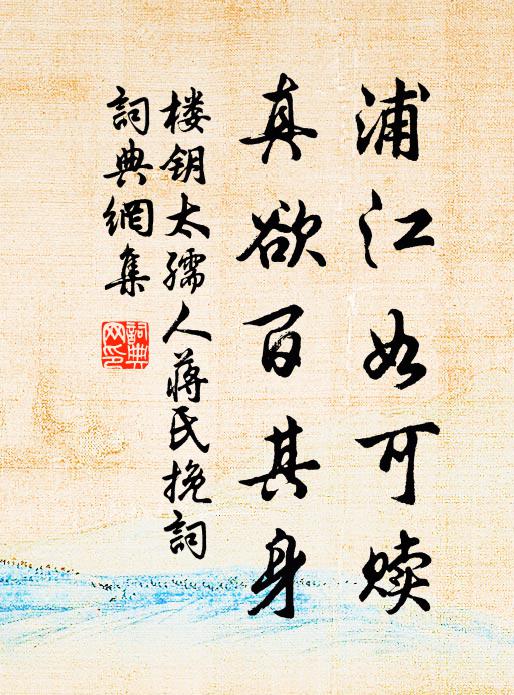 浦江如可赎
真欲百其身
楼钥太孺人蒋氏挽詞
詞典網集
詞典
网印